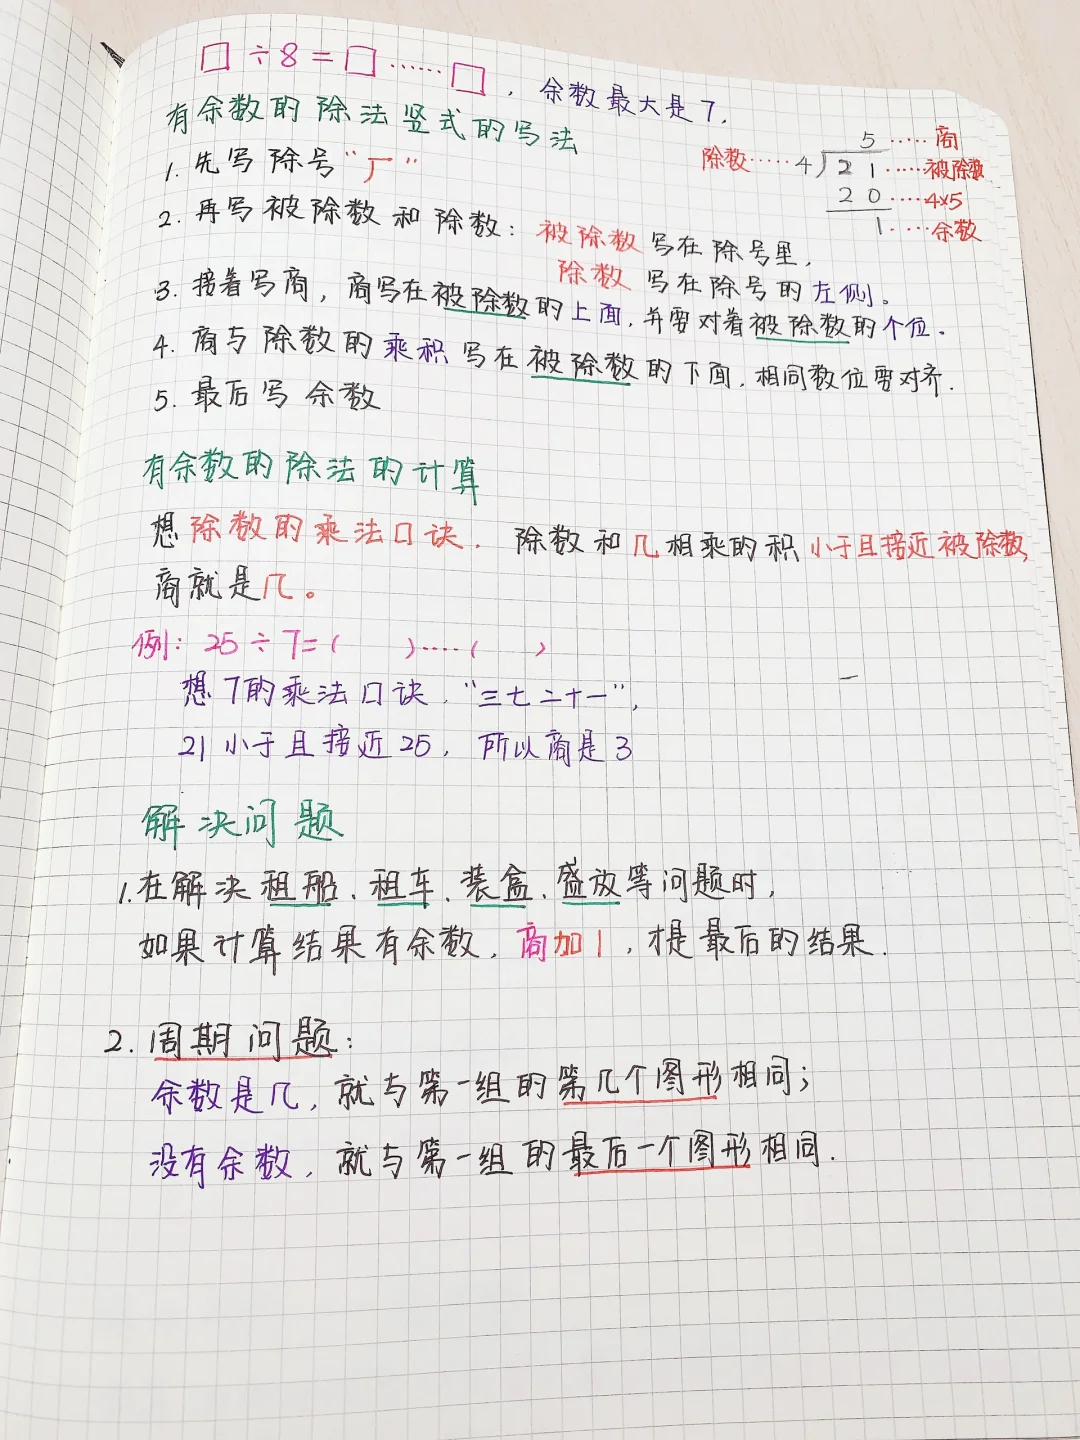 □÷8=□……□，余数最大是7.
有余数的除法竖式的写法
1. 先写除号“厂”
2. 再写被除数和除数：被除数写在除号里，
除数写在除号的左侧。
3. 接着写商，商写在被除数的上面，并要对着被除数的个位。
4. 商与除数的乘积写在被除数的下面，相同数位要对齐.
5. 最后写余数
5……商
除数……4)21……被除数
20……4×5
1……余数
有余数的除法的计算
想除数的乘法口诀．除数和几相乘的积小于且接近被除数，
商就是几。
例：25÷7=(　　)……(　　)
想7的乘法口诀．“三七二十一”，
21小于且接近25，所以商是3
解决问题
1.在解决租船、租车、装盒、盛放等问题时，
如果计算结果有余数，商加1，才是最后的结果．
2. 周期问题：
余数是几，就与第一组的第几个图形相同；
没有余数，就与第一组的最后一个图形相同．